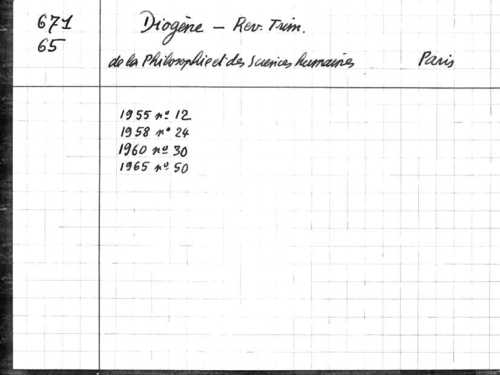 671 Diogène — Rev. Trim.
65 de la Philosophie et des Sciences humaines Paris
1955 nº 12
1958 nº 24
1960 nº 30
1965 nº 50